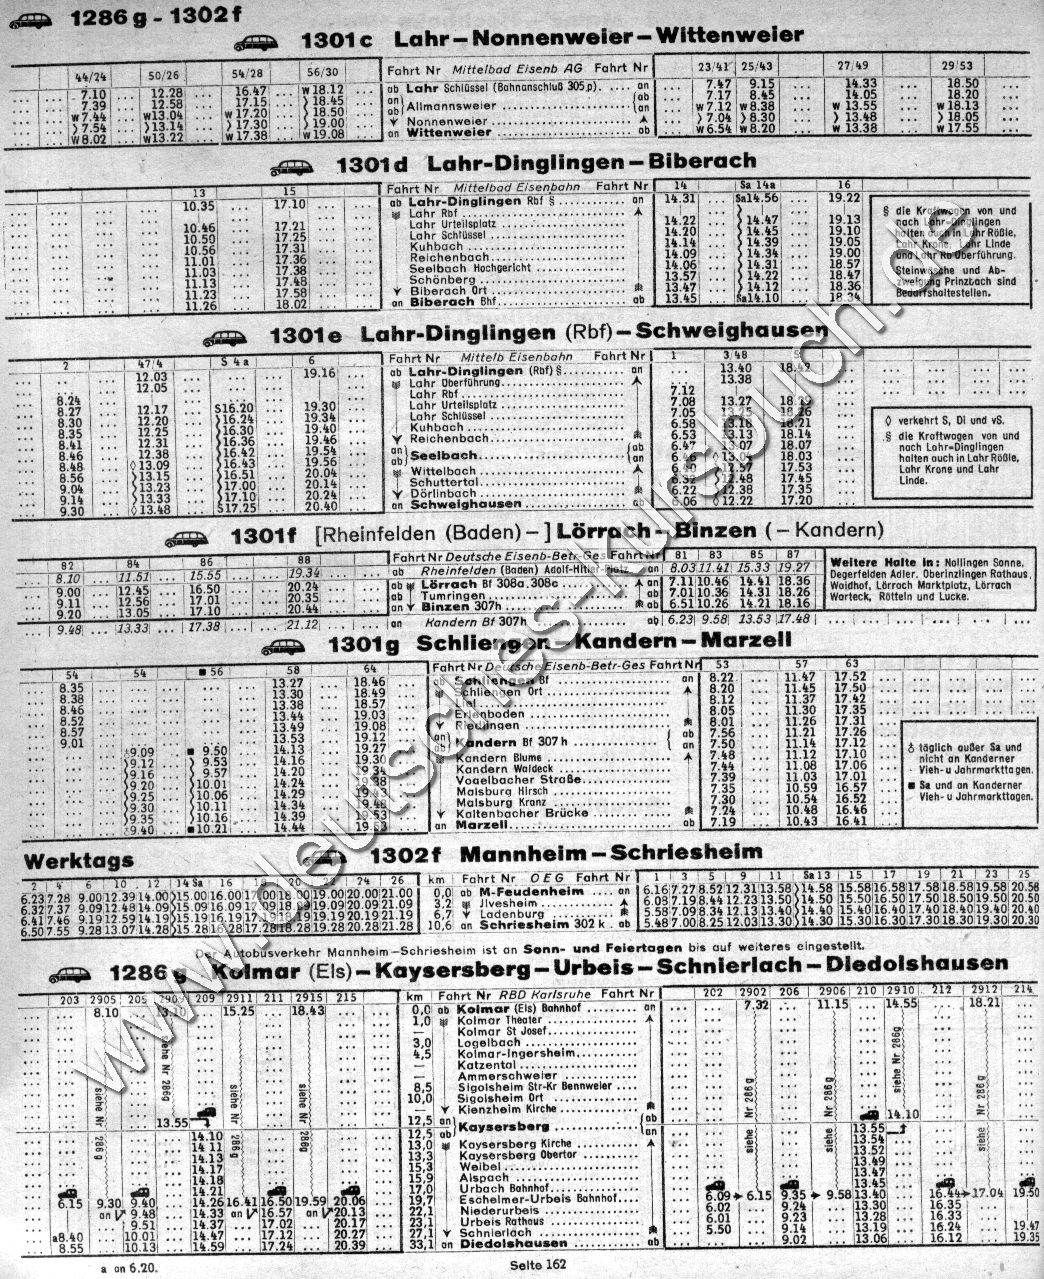 1286 g - 1302 f
1301c Lahr – Nonnenweier – Wittenweier
44/24 50/26 54/28 56/30 Fahrt Nr Mittelbad Eisenb AG Fahrt Nr 23/41 25/43 27/49 29/53
7.10 12.28 16.47 w18.12 ab Lahr Schlüssel (Bahnanschluß 305 p) an 7.47 9.15 14.33 18.50
7.39 12.58 17.15 18.45 an Allmannsweier ab 7.17 8.45 14.05 18.20
w7.44 w13.04 w17.20 18.50 ab an w7.12 w8.38 w13.55 w18.13
7.54 13.14 17.30 19.00 Nonnenweier 7.04 8.30 13.48 18.05
w8.02 w13.22 w17.38 w19.08 an Wittenweier ab w6.54 w8.20 w13.38 w17.55
1301d Lahr-Dinglingen – Biberach
13 15 Fahrt Nr Mittelbad Eisenbahn Fahrt Nr 14 Sa 14a 16
10.35 17.10 ab Lahr-Dinglingen Rbf § an 14.31 Sa14.56 19.22
Lahr Rbf
10.46 17.21 Lahr Urteilsplatz 14.22 14.47 19.13
10.50 17.25 Lahr Schlüssel 14.20 14.45 19.10
10.56 17.31 Kuhbach 14.14 14.39 19.05
11.01 17.36 Reichenbach 14.09 14.34 19.00
11.03 17.38 Seelbach Hochgericht 14.06 14.31 18.57
11.13 17.48 Schönberg 13.57 14.22 18.47
11.23 17.58 Biberach Ort 13.47 14.12 18.36
11.26 18.02 an Biberach Bhf ab 13.45 Sa14.10 18.34
§ die Kraftwagen von und
nach Lahr-Dinglingen
halten auch in Lahr Rößle,
Lahr Krone, Lahr Linde
und Lahr Rb Überführung.
Steinwasche und Ab-
zweigung Prinzbach sind
Bedarfshaltestellen.
1301e Lahr-Dinglingen (Rbf) – Schweighausen
2 47/4 S 4a 6 Fahrt Nr Mittelb Eisenbahn Fahrt Nr 1 3/48
12.03 19.16 ab Lahr-Dinglingen (Rbf) § an 13.40 18.42
12.05 Lahr Überführung 13.38
8.24 Lahr Rbf 7.12
8.27 12.17 S16.20 19.30 Lahr Urteilsplatz 7.08 13.27
8.30 12.20 16.24 19.34 Lahr Schlüssel 7.05 13.25 18.26
8.35 12.25 16.30 19.40 Kuhbach 6.58 13.18 18.21
8.41 12.31 16.36 19.46 Reichenbach 6.53 13.13 18.14
8.46 12.38 16.42 19.54 an Seelbach ab 6.47 13.07 18.07
8.48 ◊13.09 16.43 19.56 ab an 6.46 18.03
8.56 13.15 16.51 20.04 Wittelbach 6.40 12.57 17.53
9.04 13.23 17.00 20.14 Schuttertal 6.32 12.48 17.45
9.14 13.33 17.10 20.24 Dörlinbach 6.22 12.38 17.35
9.30 ◊13.48 S17.25 20.40 an Schweighausen ab 6.06 ◊12.22 17.20
◊ verkehrt S, Di und vS.
§ die Kraftwagen von und
nach Lahr-Dinglingen
halten auch in Lahr Rößle,
Lahr Krone und Lahr
Linde.
1301f [Rheinfelden (Baden) –] Lörrach – Binzen (– Kandern)
82 84 86 88 Fahrt Nr Deutsche Eisenb-Betr-Ges Fahrt Nr 81 83 85 87
8.10 11.51 15.55 19.34 ab Rheinfelden (Baden) Adolf-Hitler-Platz an 8.03 11.41 15.33 19.27
9.00 12.45 16.50 20.24 ab Lörrach Bf 308a.308c an 7.11 10.46 14.41 18.36
9.11 12.56 17.01 20.35 Tumringen 7.01 10.36 14.31 18.26
9.20 13.05 17.10 20.44 an Binzen 307h ab 6.51 10.26 14.21 18.16
9.48 13.33 17.38 21.12 an Kandern Bf 307h ab 6.23 9.58 13.53 17.48
Weitere Halte in: Nollingen Sonne,
Degerfelden Adler, Oberinzlingen Rathaus,
Waidhof, Lörrach Marktplatz, Lörrach
Warteck, Rötteln und Lucke.
1301g Schliengen – Kandern – Marzell
54 54 ■ 56 58 64 Fahrt Nr Deutsche Eisenb-Betr-Ges Fahrt Nr 53 57 63
8.35 13.27 18.46 ab Schliengen Bf an 8.22 11.47 17.52
8.38 13.30 18.49 Schliengen Ort 8.20 11.45 17.50
8.46 13.38 18.57 Liel 8.12 11.37 17.42
8.52 13.44 19.03 Erlenboden 8.05 11.30 17.35
8.57 13.49 19.08 Riedlingen 8.01 11.26 17.31
9.01 13.53 19.12 an Kandern Bf 307h ab 7.56 11.21 17.26
9.09 ■ 9.50 14.13 19.27 ab an 7.50 11.14 17.12
9.12 9.53 14.16 19.30 Kandern Blume 7.48 11.12 17.10
9.16 9.57 14.20 19.34 Kandern Waldeck 7.44 11.08 17.06
9.20 10.01 14.24 19.38 Vogelbacher Straße 7.39 11.03 17.01
9.25 10.06 14.29 Malsburg Hirsch 7.35 10.59 16.57
9.30 10.11 14.34 19.48 Malsburg Kranz 7.30 10.54 16.52
9.35 10.16 14.39 19.53 Kaltenbacher Brücke 7.24 10.48 16.46
9.40 ■10.21 14.44 an Marzell ab 7.19 10.43 16.41
täglich außer Sa und
nicht an Kanderner
Vieh- u Jahrmarkttagen.
■ Sa und an Kanderner
Vieh- u Jahrmarkttagen.
Werktags 1302f Mannheim – Schriesheim
2 4 6 10 12 14 Sa 16 20 24 26 km Fahrt Nr OEG Fahrt Nr 1 3 5 9 11 Sa 13 15 17 19 21 23 25
6.23 7.28 9.00 12.39 14.00 15.00 16.00 17.00 18.00 19.00 20.00 21.00 0,0 ab M-Feudenheim an 6.16 7.27 8.52 12.31 13.58 14.58 15.58 16.58 17.58 18.58 19.58 20.58
6.32 7.37 9.09 12.48 14.09 15.09 16.09 17.09 18.09 19.09 20.09 21.09 3,2 Ilvesheim 6.08 7.19 8.44 12.23 13.50 14.50 15.50 16.50 17.50 18.50 19.50 20.50
6.41 7.46 9.19 12.59 14.19 15.19 16.19 17.19 18.19 19.19 20.19 21.19 6,7 Ladenburg 5.58 7.09 8.34 12.13 13.40 14.40 15.40 16.40 17.40 18.40 19.40 20.40
6.50 7.55 9.28 13.07 14.28 15.28 16.28 17.28 18.28 19.28 20.28 21.28 10,6 an Schriesheim 302 k ab 5.48 7.00 8.25 12.03 13.30 14.30 15.30 16.30 17.30 18.30 19.30 20.30
Der Autobusverkehr Mannheim–Schriesheim ist an Sonn- und Feiertagen bis auf weiteres eingestellt.
1286 g Kolmar (Els) – Kaysersberg – Urbeis – Schnierlach – Diedolshausen
203 2905 205 2909 209 2911 211 2915 215 km Fahrt Nr RBD Karlsruhe Fahrt Nr 202 2902 206 2906 210 2910 212 2912 214
8.10 13.10 15.25 18.43 0,0 ab Kolmar (Els) Bahnhof an 7.32 11.15 14.55 18.21
1,0 Kolmar Theater
— Kolmar St Josef
3,0 Logelbach
4,5 Kolmar-Ingersheim
— Katzental
— Ammerschweier
8,5 Sigolsheim Str-Kr Bennweier
10,0 Sigolsheim Ort
— Kienzheim Kirche
siehe Nr 286g siehe Nr 286g siehe Nr 286g siehe Nr 286g siehe Nr 286g siehe Nr 286g siehe Nr 286g siehe Nr 286g
13.55 12,5 an Kaysersberg ab 14.10
14.10 12,5 ab an 13.55
14 11 13,0 Kaysersberg Kirche 13.54
14.13 13,3 Kaysersberg Obertor 13.52
14.17 15,3 Weibel 13.49
14.18 15,9 Alspach 13.47
14.21 17,0 Urbach Bahnhof 13.45
6.15 9.30 9.40 14.26 16.41 16.50 19.59 20.06 19,7 Eschelmer-Urbeis Bahnhof 6.09 6.15 9.35 9.58 13.40 16.44 17.04 19.50
an 9.48 14.33 an 16.57 an 20.13 22,1 Niederurbeis 6.02 9.24 13.30 16.35
9.51 14.37 17.02 20.17 23,1 Urbeis Rathaus 6.01 9.23 13.28 16.33
a8.40 10.01 14.47 17.12 20.27 27,1 Schnierlach 5.50 9.14 13.19 16.24 19.47
8.55 10.13 14.59 17.24 20.39 33,1 an Diedolshausen ab 9.02 13.06 16.12 19.35
a an 6.20.
Seite 162
www.deutsches-kursbuch.de